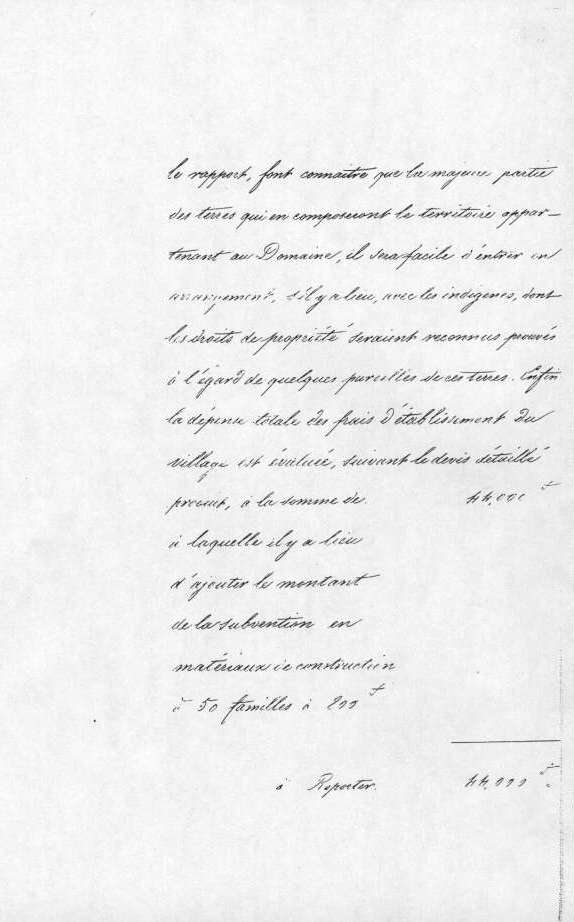 le rapport, font connaître que la majeure partie
des terres qui en composeront le territoire appar-
tenant au Domaine, il sera facile d'entrer en
arrangement, s'il y a lieu, avec les indigènes, dont
les droits de propriété seraient reconnus prouvés
à l'égard de quelques parcelles de ces terres. Enfin
la dépense totale des frais d'établissement du
village est évaluée, suivant le devis détaillé
produit, à la somme de 44,000 f
à laquelle il y a lieu
d'ajouter le montant
de la subvention en
matériaux de construction
à 50 familles à f
à Reporter. 44,000 f